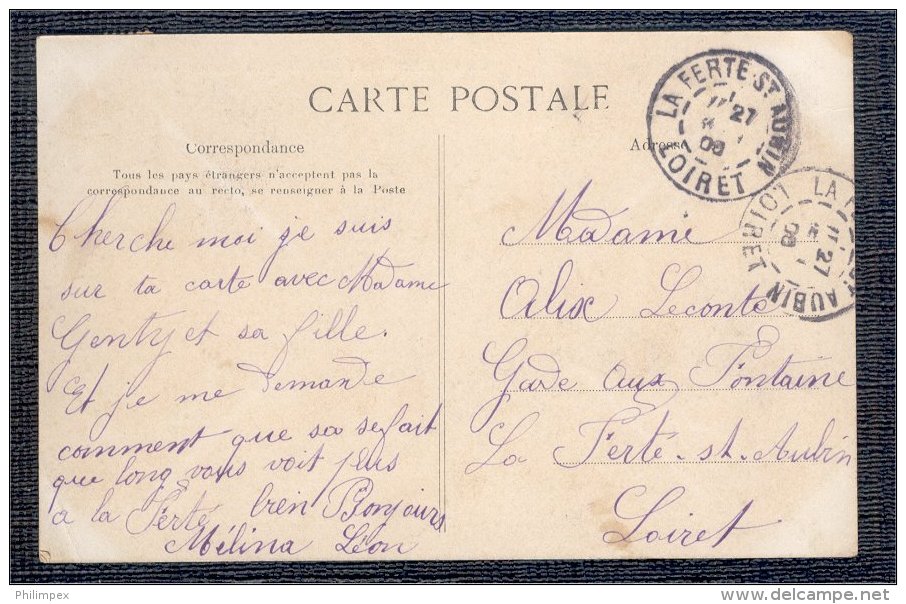 CARTE POSTALE
Correspondance
Tous les pays étrangers n'acceptent pas la
correspondance au recto, se renseigner à la Poste
Cherche moi je suis
sur ta carte avec Madame
Genty et sa fille.
Et je me demande
comment que sa se fait
que long vous voit plus
a la Ferté bien Bonjours
Mélina Léon
Adresse
Madame
Alix Leconte
Gade aux Fontaine
La Ferte-st-Aubin
Loiret
LA FERTE-ST AUBIN
27
08
LOIRET
LA F
27
08
AUBIN
LOIRET
Philimpex
www.delcampe.net